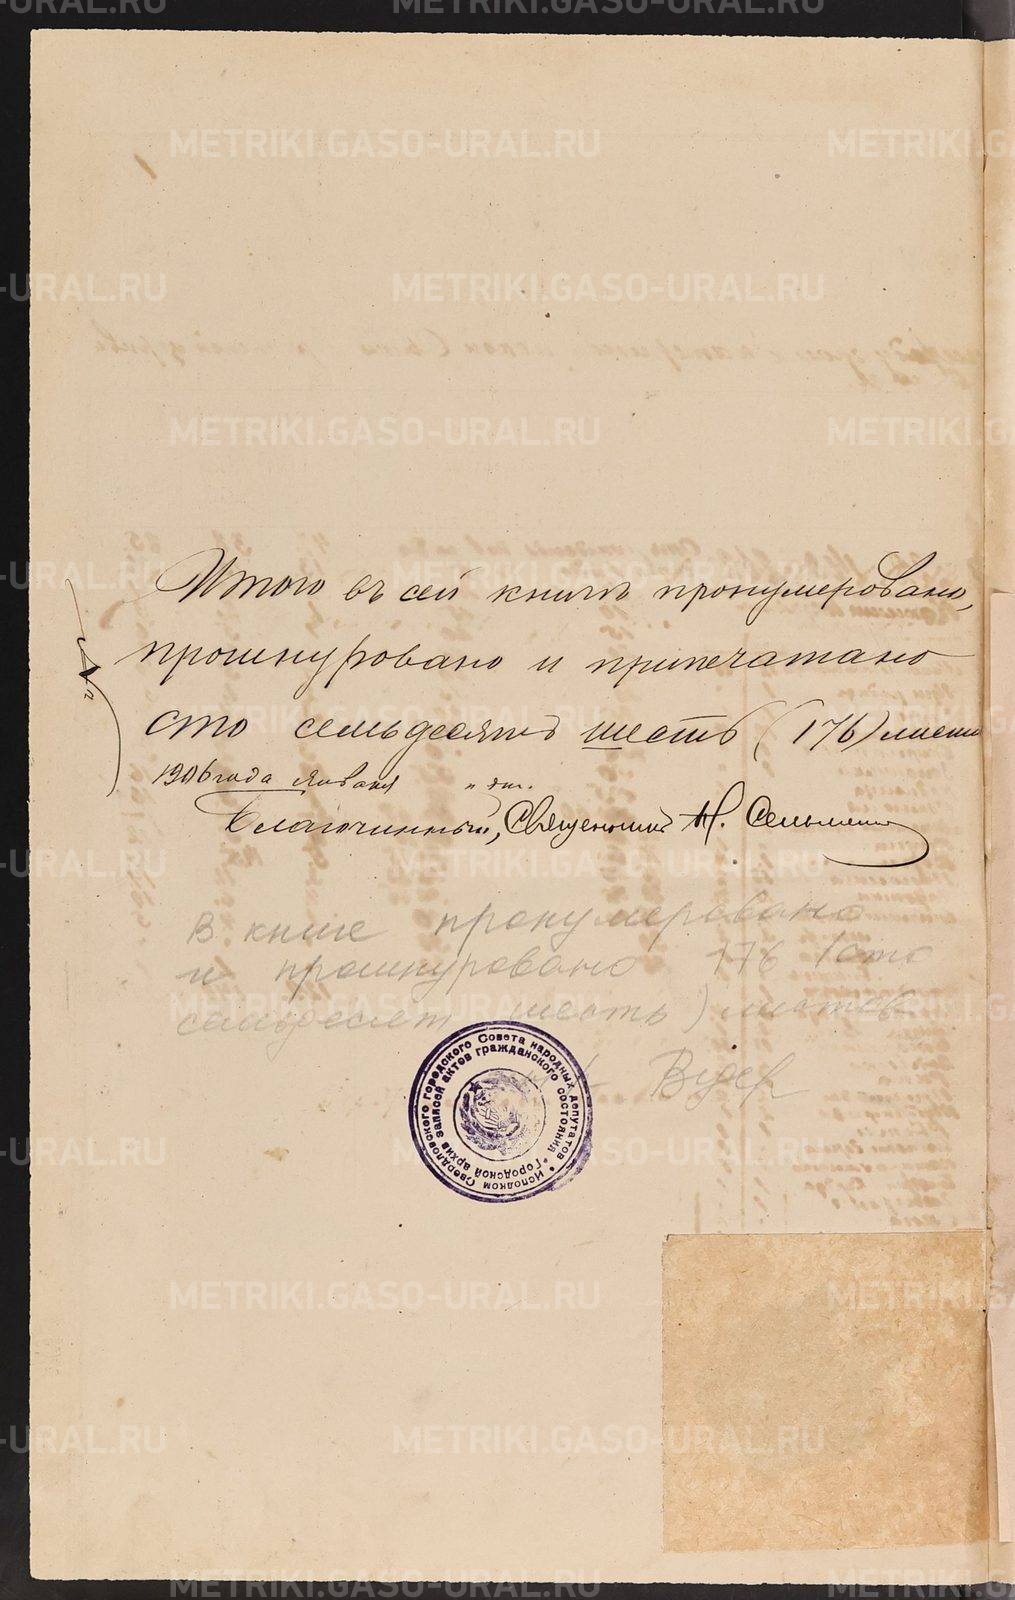 METRIKI.GASO-URAL.RU
Итого въ сей книгѣ пронумеровано,
прошнуровано и припечатано
сто семьдесятъ шесть (176) листа
1906 года Января " дня.
Благочинный, Священникъ М.
В книге пронумеровано
и прошнуровано 176 (сто
семьдесят шесть) листов
Исполком Свердловского городского Совета народных депутатов
Городской архив записей актов гражданского состояния